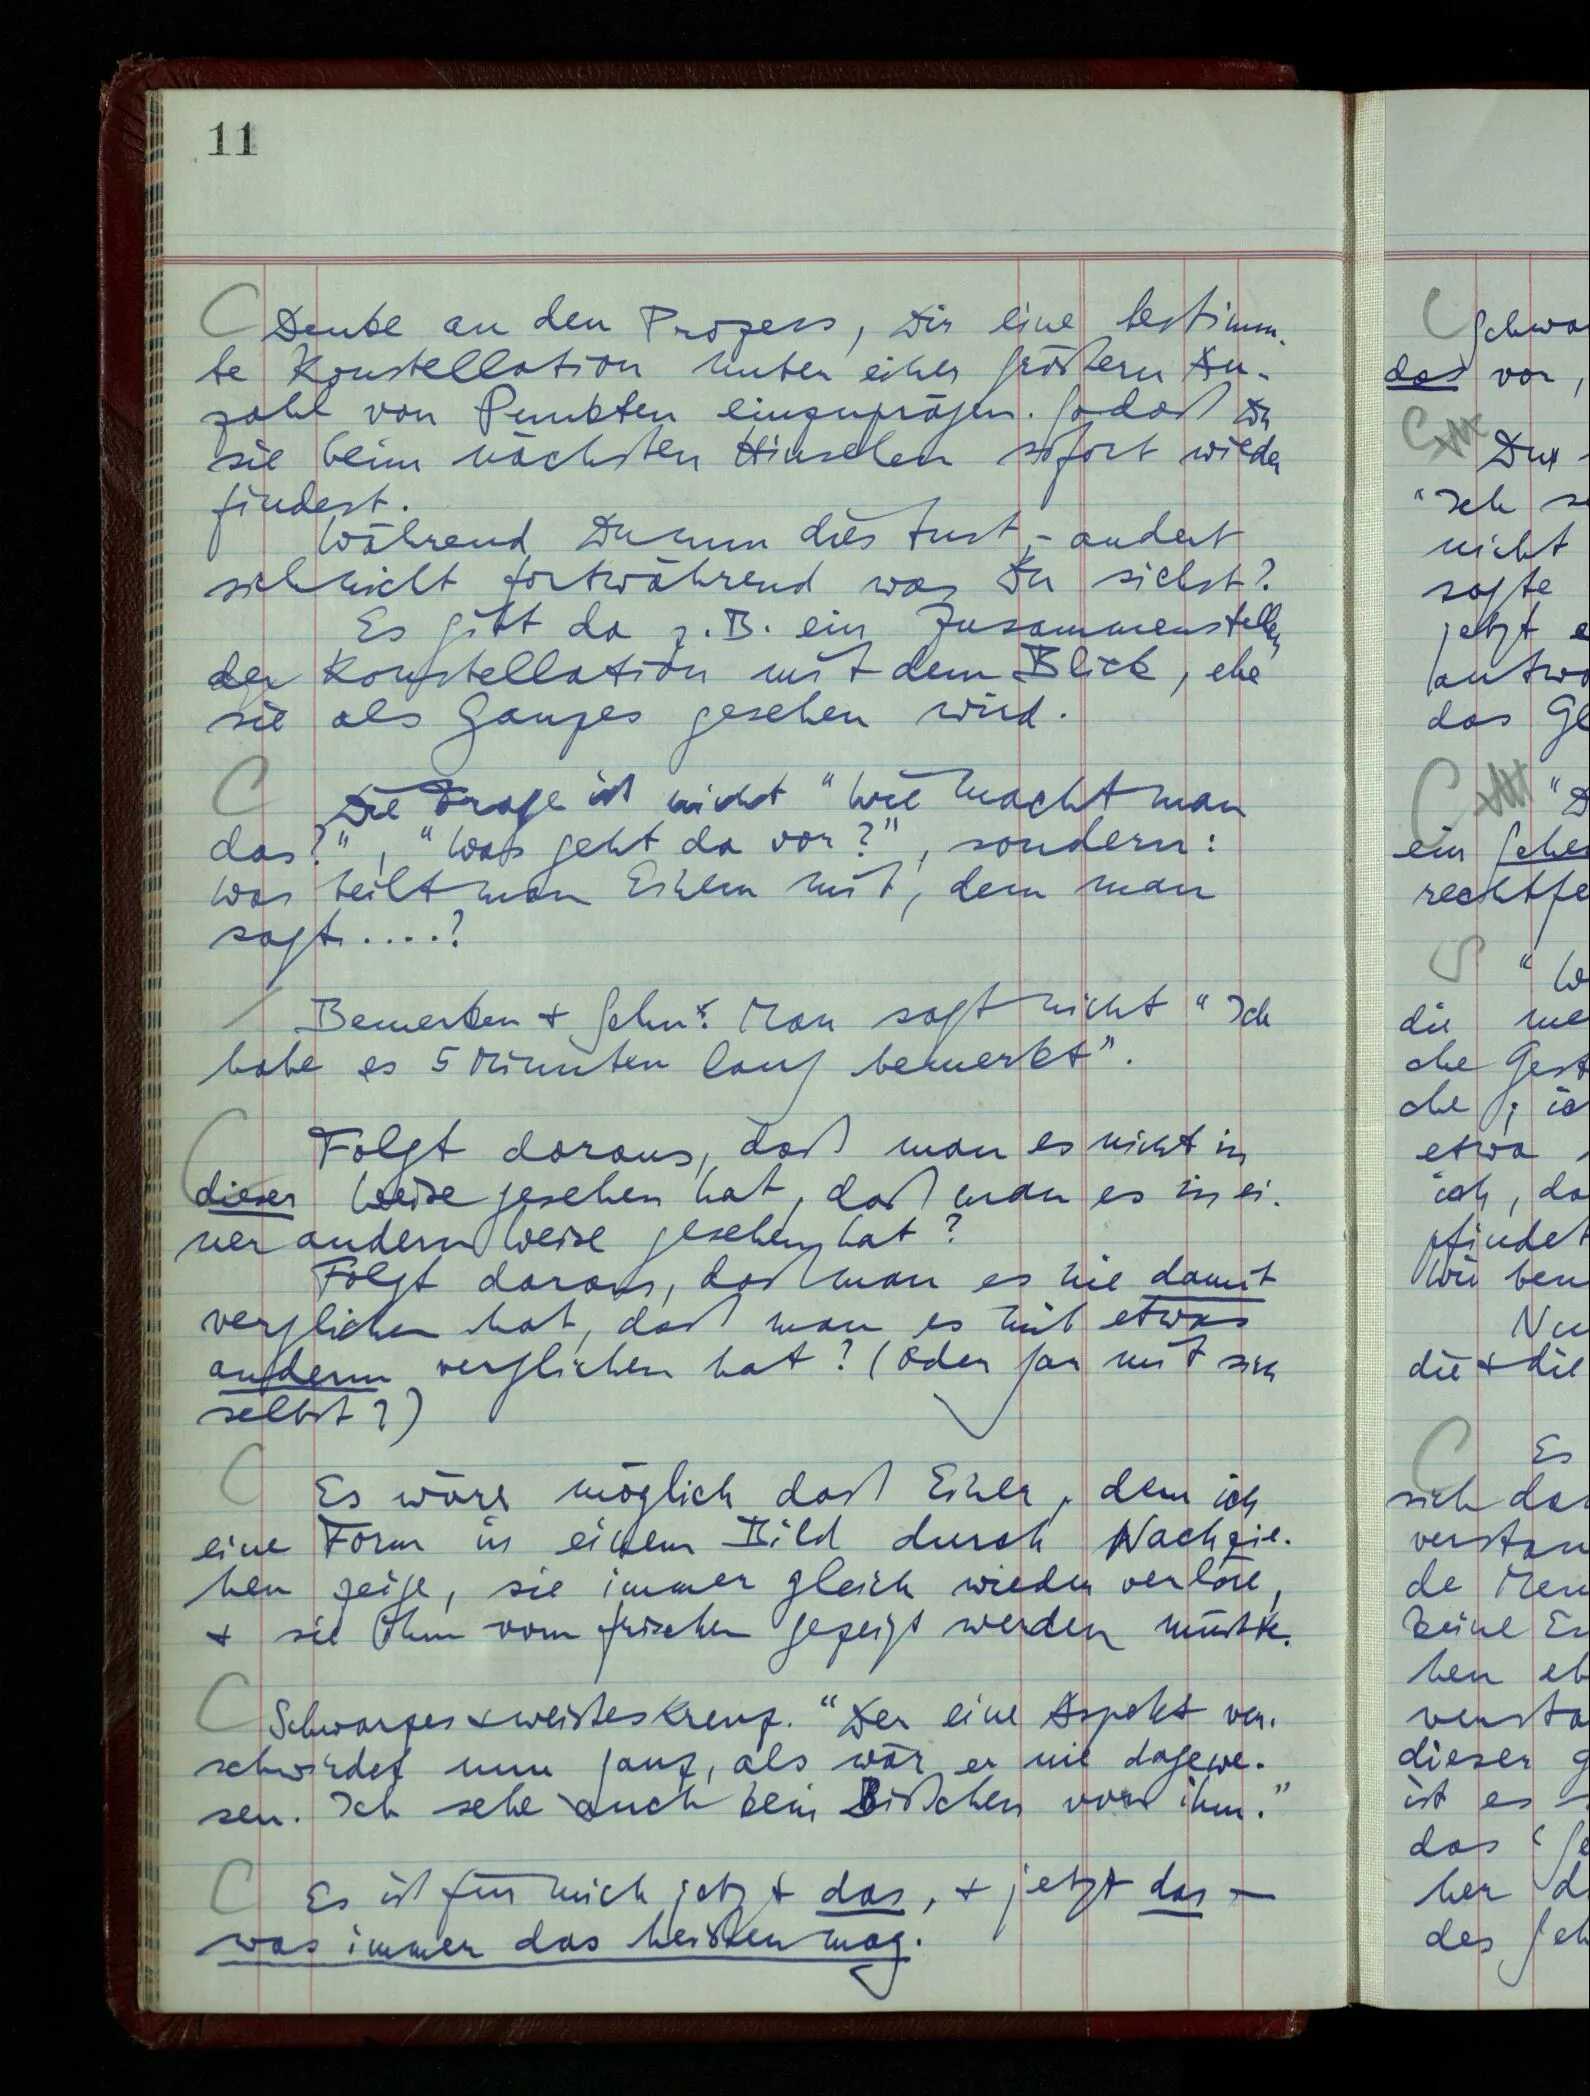 11
C Denke an den Prozess, Dir eine bestimm-
te Konstellation unter einer größern An-
zahl von Punkten einzuprägen. Sodaß Du
sie beim nächsten Hinsehen sofort wieder
findest.
Während Du nun dies tust, – ändert
sich nicht fortwährend was Du siehst?
Es gibt da z.B. ein Zusammenstellen
der Konstellation mit dem Blick, ehe
sie als Ganzes gesehen wird.
C Die Frage ist nicht "Wie macht man
das?", "Was geht da vor?", sondern:
Was teilt man Einem mit, dem man
sagt....?
/ Bemerken + Sehn: Man sagt nicht "Ich
habe es 5 Minuten lang bemerkt".
C Folgt daraus, daß man es nicht in
dieser Weise gesehen hat, daß man es in ei-
ner andern Weise gesehen hat?
Folgt daraus, daß man es nie damit
verglichen hat, daß man es mit etwas
anderm verglichen hat? (Oder gar mit sich
selbst?)
C Es wäre möglich daß Einer, dem ich
eine Form in einem Bild durch Nachzie-
hen zeige, sie immer gleich wieder verlöre,
+ sie ihm vom frischen gezeigt werden müßte.
C Schwarzes + weißes Kreuz. "Der eine Aspekt ver-
schwindet nun ganz, als wär er nie dagewe-
sen. Ich sehe auch kein Bißchen von ihm."
C Es ist für mich jetzt das, + jetzt das –
was immer das heißen mag.
C Schwa
das vor,
C
Du
"Ich s
nicht
sagte
jetzt e
antwo
das Gl
C "D
ein Sehe
rechtfe
S "W
die me
che Gest
che ; ic
etwa
ich, da
pfindet
Wir ben
Nu
die + die
C Es
sich das
verstan
de Men
keine Er
hen eb
versta
dieser g
ist es
das 'Se
her d
des Seh